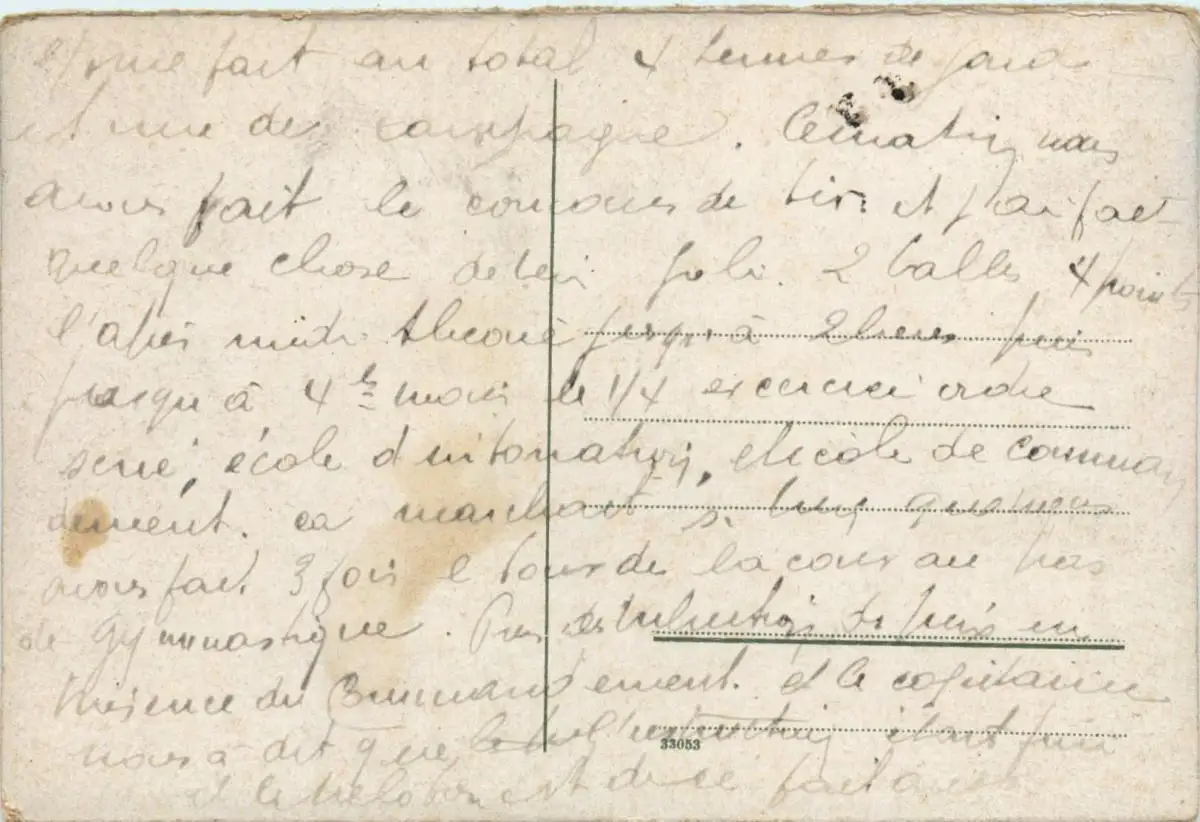 fait au total 4 tenues de
et une de campagne. Ce matin nous
avons fait le concours de tir et j'ai fait
quelque chose de bien joli 2 balles 4 points
l'après midi théorie jusqu'à 2 heures puis
jusqu'à 4 h moins le 1/4 exercice ordre
serré, école d'intonation, et école de comman
dement. ca marchait si bien que nous
avons fait 3 fois le tour de la cour au pas
de gymnastique. Puis distribution de prix en
présence du Commandement. et le capitaine
nous à dit que l'instruction étant fini
et le peloton est
33053